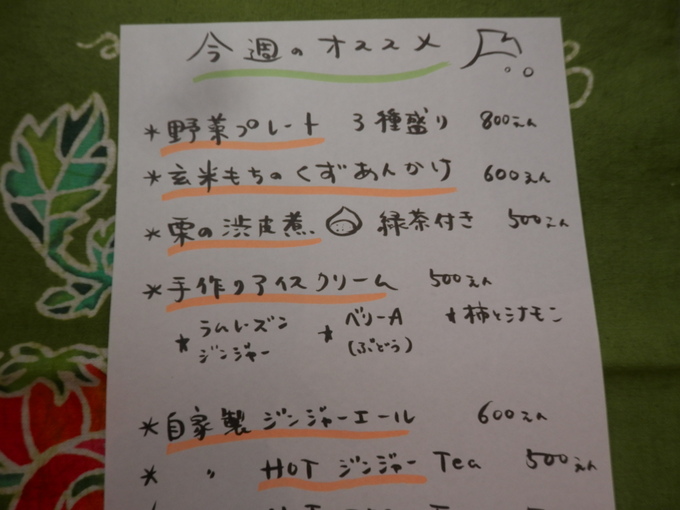 今週のオススメ
*野菜プレート 3種盛り 800えん
*玄米もちのくずあんかけ 600えん
*栗の渋皮煮 緑茶付き 500えん
*手作りアイスクリーム 500えん
*ラムレーズンジンジャー *ベリーA(ぶどう) *柿とシナモン
*自家製 ジンジャーエール 600えん
* 〃 HOT ジンジャー Tea 500えん